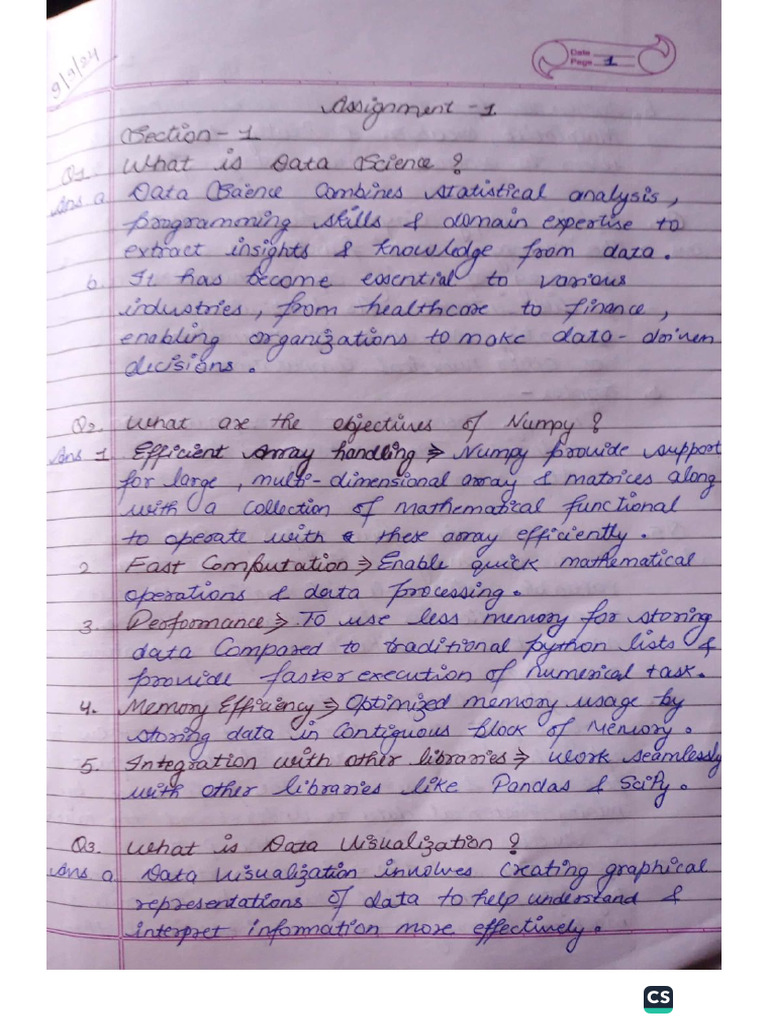 9/9/24
Date
Page 1
Assignment - 1
Section - 1
Q1. What is Data Science ?
Ans a. Data Science Combines statistical analysis,
programming skills & domain expertise to
extract insights & knowledge from data.
b. It has become essential to various
industries, from healthcare to finance,
enabling organizations to make data-driven
decisions.
Q2. What are the objectives of Numpy ?
Ans 1 Efficient Array handling ⇒ Numpy provide support
for large, multi-dimensional array & matrices along
with a collection of mathematical functional
to operate with these array efficiently.
2. Fast Computation ⇒ Enable quick mathematical
operations & data processing.
3. Performance ⇒ To use less memory for storing
data Compared to traditional python lists &
provide faster execution of numerical task.
4. Memory Efficiency ⇒ Optimized memory usage by
storing data in Contiguous block of Memory.
5. Integration with other libraries ⇒ work seamlessly
with other libraries like Pandas & SciPy.
Q3. What is Data Visualization ?
Ans a. Data Visualization involves creating graphical
representations of data to help understand &
interpret information more effectively.
CS